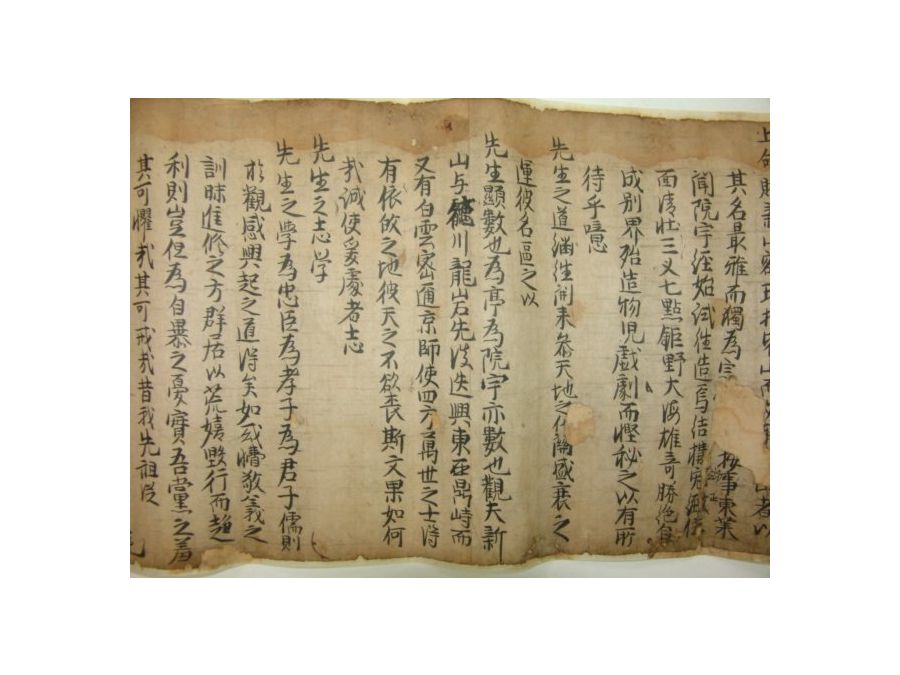 山
其名最雅而獨為宗 按事東萊
聞院宇經始試往造焉結構
面清壯三叉七點鉅野大海雄奇勝絕
成別界殆造物兒戲劇而慳秘之以有所
待乎噫
先生之道繼往開來參天地之 盛衰之
運彼名區之以
先生顯數也為亭為院宇亦數也觀夫新
山与德川龍岩先後迭興東西鼎峙而
又有白雲密邇京師使四方萬世之士得
有依放之地彼天之不欲喪斯文果如何
哉誠使爰處者志
先生之志學
先生之學為忠臣為孝子為君子儒則
於觀感興起之道得矣如或懵敬義之
訓昧進修之方群居以荒嬉毀行而趨
利則豈但為自暴之憂實吾黨之羞
其可懼哉其可戒哉昔我先祖從